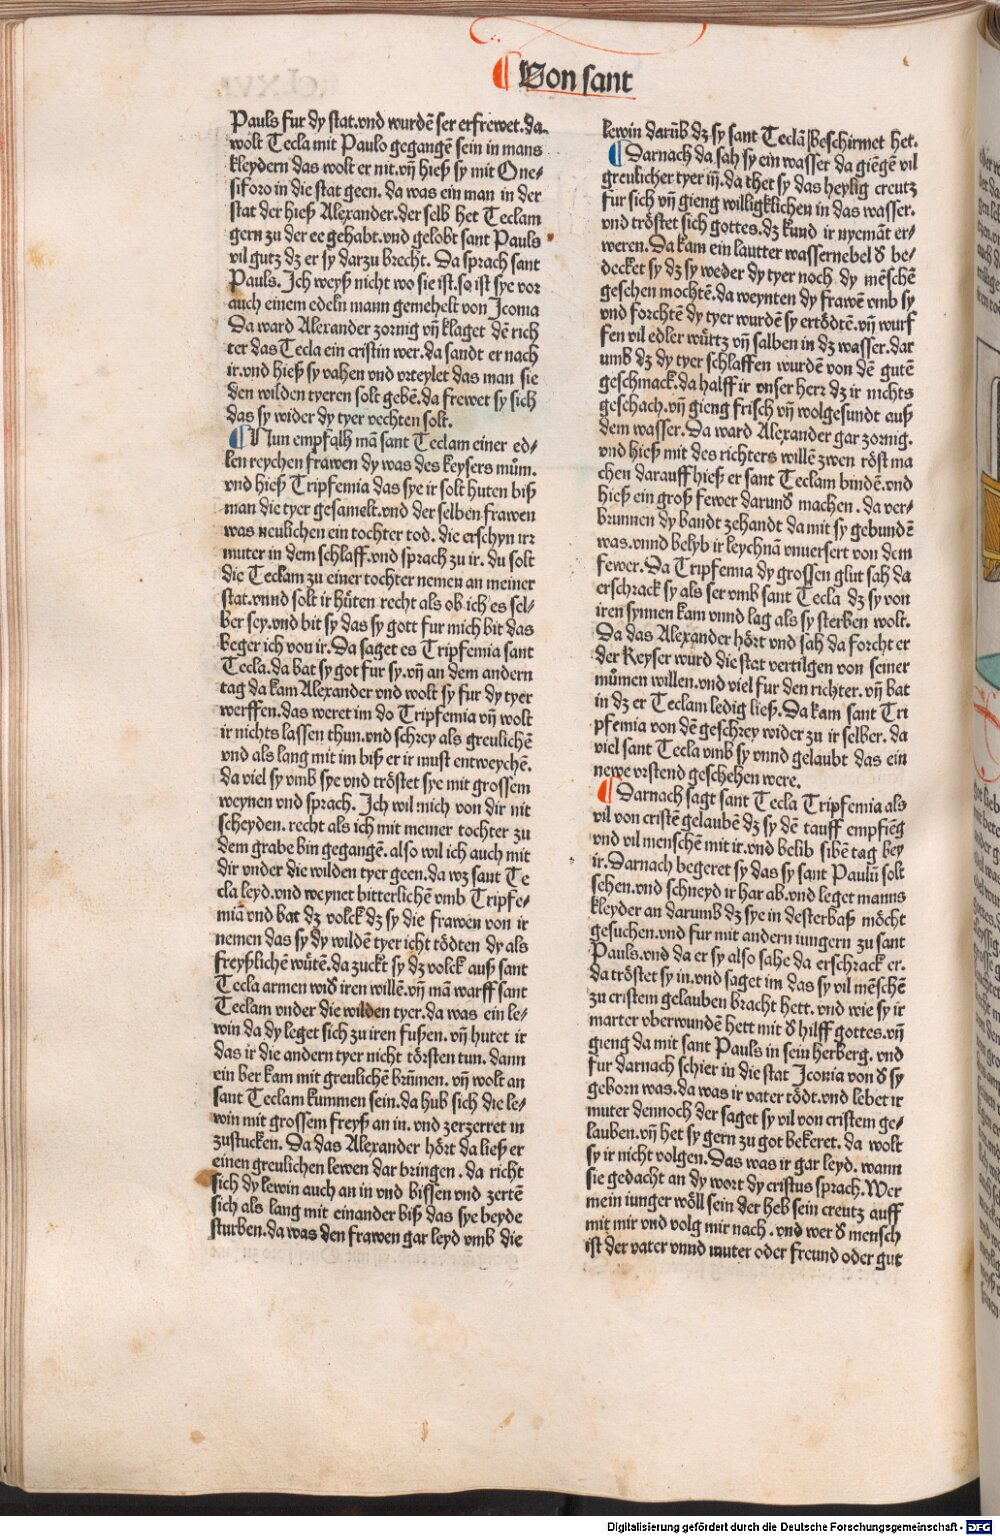 ¶Von sant
Pauls fur dy stat.vnd wurdē ser erfrewet.da
wolt Tecla mit Paulo gegangē sein in mans
kleydern das wolt er nit.vñ hieß sy mit One⸗
siforo in die stat geen. da was ein man in der
stat der hieß Alexander.der selb het Teclam
gern zu der ee gehabt.vnd gelobt sant Pauls
vil gutz dz er sy darzu brecht. Da sprach sant
Pauls. Ich weyß nicht wo sie ist.so ist sye vor
auch einem edeln mann gemehelt von Iconia
Da ward Alexander zornig vñ klaget dē rich
ter das Tecla ein cristin wer.da sandt er nach
ir.vnd hieß sy vahen vnd vrteylet das man sie
den wilden tyeren solt gebē.da frewet sy sich
das sy wider dy tyer vechten solt.
¶Nun empfalh mā sant Teclam einer ed⸗
len reychen frawen dy was des keysers mům.
vnd hieß Tripfemia das sye ir solt huten biß
man die tyer gesamelt.vnd der selben frawen
was neulichen ein tochter tod. die erschyn irr
muter in dem schlaff.vnd sprach zu ir. du solt
die Teclam zu einer tochter nemen an meiner
stat.vnnd solt ir hüten recht als ob ich es sel⸗
ber sey.vnd bit sy das sy gott fur mich bit das
beger ich von ir. Da saget es Tripfemia sant
Tecla.da bat sy got fur sy.vñ an dem andern
tag da kam Alexander vnd wolt sy fur dy tyer
werffen.das weret im do Tripfemia vñ wolt
ir nichts lassen thun.vnd schrey als greulichē
vnd als lang mit im biß er ir must entweychē.
da viel sy vmb sye vnd tröstet sye mit grossem
weynen vnd sprach. Ich wil mich von dir nit
scheyden. recht als ich mit meiner tochter zu
dem grabe bin gegangē. also wil ich auch mit
dir vnder die wilden tyer geen.da wz sant Te
cla leyd.vnd weynet bitterlichē vmb Tripfe⸗
miā vnd bat dz volck dz sy die frawen von ir
nemen das sy dy wildē tyer icht tödten dy als
freyßlichē wütē.da zuckt sy dz volck auß sant
Tecla armen widꝰ iren willē.vñ mā warff sant
Teclam vnder die wilden tyer.da was ein le⸗
win da dy leget sich zu iren fußen. vñ hutet ir
das ir die andern tyer nicht törsten tun. dann
ein ber kam mit greulichē brümen. vñ wolt an
sant Teclam kummen sein.da hub sich die le⸗
win mit grossem freyß an in. vnd zerzerret in
zustucken. Da das Alexander hört da ließ er
einen greulichen lewen dar bringen. da richt
sich dy lewin auch an in vnd bissen vnd zertē
sich als lang mit einander biß das sye beyde
sturben.da was den frawen gar leyd vmb die
lewin darüb dz sy sant Teclā beschirmet het.
¶Darnach da sah sy ein wasser da giēgē vil
greulicher tyer iñ.da thet sy das heylig creutz
fur sich vñ gieng willigklichen in das wasser.
vnd tröstet sich gottes.dz kund ir nyemāt er⸗
weren. Da kam ein lautter wassernebel ꝺ be⸗
decket sy dz sy weder dy tyer noch dy mēschē
gesehen mochtē.da weynten dy frawē vmb sy
vnd forchtē dy tyer wurdē sy ertödtē.vñ wurf
fen vil edler würtz vñ salben in dz wasser.dar
umb dz dy tyer schlaffen wurdē von dē gutē
geschmack.da halff ir vnser herr dz ir nichts
geschach.vñ gieng frisch vñ wolgesundt auß
dem wasser. Da ward Alexander gar zornig.
vnd hieß mit des richters willē zwen röst ma
chen darauff hieß er sant Teclam bindē.vnd
hieß ein groß fewer darunꝺ machen. da ver⸗
brunnen dy bandt zehandt da mit sy gebundē
was.vnnd belyb ir leychnā vnuersert von dem
fewer. Da Tripfemia dy grossen glut sah da
erschrack sy als ser vmb sant Tecla dz sy von
iren synnen kam vnnd lag als sy sterben wolt.
Da das Alexander hört vnd sah da forcht er
der Keyser wurd die stat vertilgen von seiner
můmen willen.vnd viel fur den richter. vñ bat
in dz er Teclam ledig ließ. Da kam sant Tri
pfemia von dē geschrey wider zu ir selber. da
viel sant Tecla vmb sy vnnd gelaubt das ein
newe vrstend geschehen were.
¶Darnach sagt sant Tecla Tripfemia als
vil von cristē gelaubē dz sy dē tauff empfiēg
vnd vil menschē mit ir.vnd belib sibē tag bey
ir. Darnach begeret sy das sy sant Paulū solt
sehen.vnd schneyd ir har ab.vnd leget manns
kleyder an darumb dz sye in desterbaß möcht
gesuchen.vnd fur mit andern iungern zu sant
Pauls.vnd da er sy also sahe da erschrack er.
da tröstet sy in.vnd saget im das sy vil mēschē
zu cristem gelauben bracht hett. vnd wie sy ir
marter vberwundē hett mit ꝺ hilff gottes.vñ
gieng da mit sant Pauls in sein herberg. vnd
fur darnach schier in die stat Iconia von ꝺ sy
geborn was.da was ir vater tödt.vnd lebet ir
muter dennoch der saget sy vil von cristem ge⸗
lauben.vñ het sy gern zu got bekeret. da wolt
sy ir nicht volgen.Das was ir gar leyd. wann
sie gedacht an dy wort dy cristus sprach.Wer
mein iunger wöll sein der heb sein creutz auff
mit mir vnd volg mir nach. vnd wer ꝺ mensch
ist der vater vnnd muter oder freund oder gut
Digitalisierung gefördert durch die Deutsche Forschungsgemeinschaft - DFG